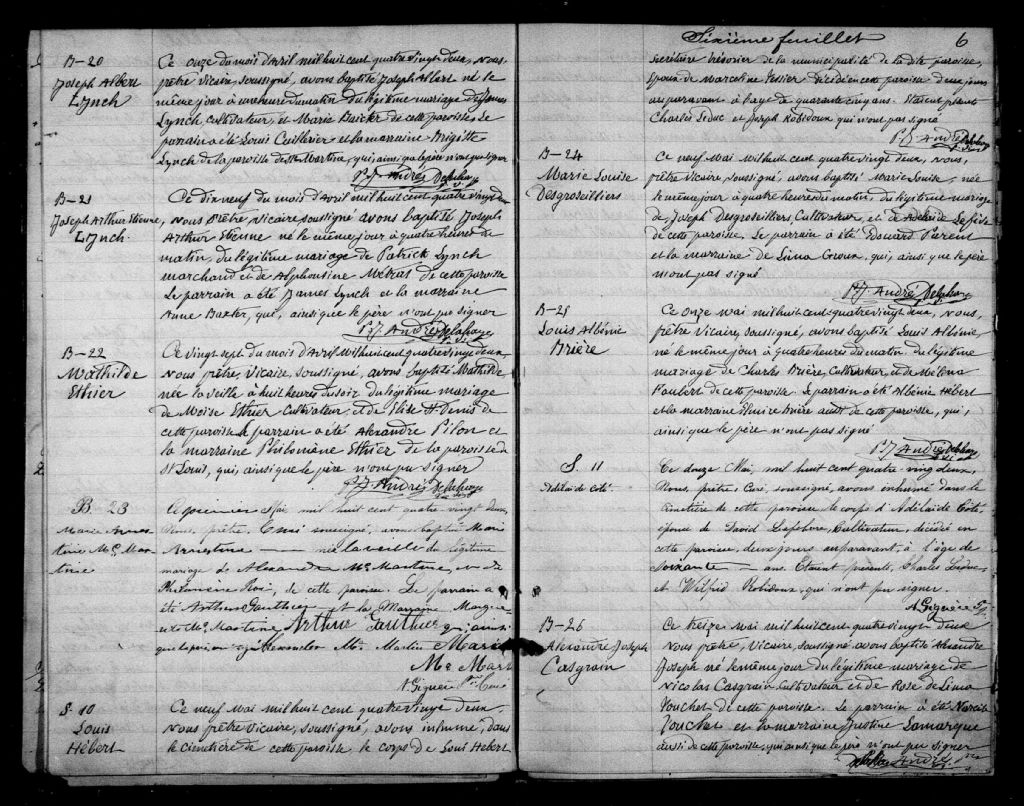 B-20
Joseph Albert
Lynch
Ce onze du mois d'Avril mil huit cent quatre vingt deux, Nous,
prêtre vicaire, soussigné, avons baptisé Joseph Albert né le
même jour à une heure du matin du légitime mariage de James
Lynch, cultivateur, et Marie Baxter de cette paroisse. Le
parrain a été Louis Cuillerier et la marraine Brigitte
Lynch de la paroisse de Ste Martine, qui, ainsi que le père n'ont pu signer
Ptr J André Delahaye
B-21
Joseph Arthur Etienne
Lynch.
Ce dix neuf du mois d'Avril mil huit cent quatre vingt deux
Nous Prêtre, vicaire soussigné avons baptisé Joseph
Arthur Etienne né le même jour à quatre heures du
matin, du légitime mariage de Patrick Lynch
marchand et de Alphonsine Métras de cette paroisse
Le parrain a été James Lynch et la marraine
Anne Baxter, qui, ainsi que le père n'ont pu signer
Ptr J André Delahaye
B-22
Mathilde
Ethier
Ce vingt sept du mois d'Avril mil huit cent quatre vingt deux,
Nous prêtre, Vicaire, soussigné, avons baptisé Mathilde
née la veille à huit heures du soir du légitime mariage
de Moise Ethier Cultivateur, et de Elise St Denis de
cette paroisse Le parrain a été Alexandre Pilon et
la marraine Philomène Ethier de la paroisse de
St Louis, qui, ainsi que le père n'ont pu signer
Ptr J André Delahaye
B-23
Marie Arnes
tine Mc Mar
tine
Ce premier Mai mil huit cent quatre vingt deux,
Nous, prêtre, Curé soussigné, avons baptisé Marie
Arnestine née la veille du légitime
mariage de Alexandre Mc Martine, et de
Philomène Roi, de cette paroisse. Le parrain a
été Arthur Gauthier et la Marraine Margue-
rite Mc Martine Arthur Gauthier qui ainsi
que le père Alexander Mc Martin Marie
Mc Mart
N. Piché Ptre Curé
S. 10
Louis
Hébert
Ce neuf Mai mil huit cent quatre vingt deux
Nous prêtre vicaire, soussigné, avons inhumé, dans
le cimetière de cette paroisse, le corps de Louis Hébert
Sixième feuillet 6
Secrétaire Trésorier de la municipalité de la dite paroisse,
époux de Marceline Tessier décédé en cette paroisse deux jours
auparavant à l'age de quarante cinq ans. Etaient présents
Charles Leduc et Joseph Robidoux qui n'ont pas signé
Ptr J André Delahaye
B-24
Marie Louise
Desgroseilliers
Ce neuf Mai mil huit cent quatre vingt deux, Nous,
prêtre Vicaire, soussigné, avons baptisé Marie Louise, née
le même jour à quatre heures du matin, du légitime mariage
de Joseph Desgroseilliers, Cultivateur, et de Adelaide Lefebvre
de cette paroisse. Le parrain a été Edouard Parent
et la marraine de Lima Giroux, qui, ainsi que le père
n'ont pas signé
Ptr J André Delahaye
B-25
Louis Albénie
Brière
Ce onze Mai mil huit cent quatre vingt deux, Nous,
prêtre, Vicaire, soussigné, avons baptisé Louis Albénie,
né le même jour à quatre heures du matin. du légitime
mariage de Charles Brière, Cultivateur, et de Mélena
Faubert de cette paroisse. Le parrain a été Albénie Hébert
et la marraine Elmire Brière aussi de cette paroisse, qui,
ainsi que le père n'ont pas signé
Ptr J André Delahaye
S. 11
Adélaide Coté
Ce douze Mai, mil huit cent quatre vingt deux,
Nous, prêtre, Curé, soussigné, avons inhumé dans le
cimetière de cette paroisse le corps d'Adélaide Coté
épouse de David Lefebvre, Cultivateur, décédée en
cette paroisse, deux jours auparavant, à l'âge de
soixante ans. Etaient présents, Charles Leduc,
et Wilfrid Robidoux, qui n'ont pu signer.
B-26
Alexandre Joseph
Casgrain
Ce treize Mai mil huit cent quatre vingt deux
Nous prêtre, Vicaire, soussigné avons baptisé Alexandre
Joseph né le même jour du légitime mariage de
Nicolas Casgrain cultivateur et de Rose de Lima
Touchet de cette paroisse. Le parrain a été Narcisse
Touchet et la marraine Justine Lamarque
aussi de cette paroisse, qui ainsi que le père n'ont pu signer
André